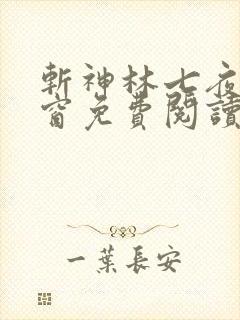 斬神林七夜
窗免費閱讀
一葉長安